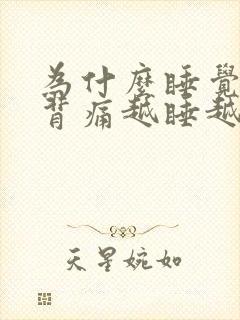 為什麼睡覺
背痛越睡越
天星婉如